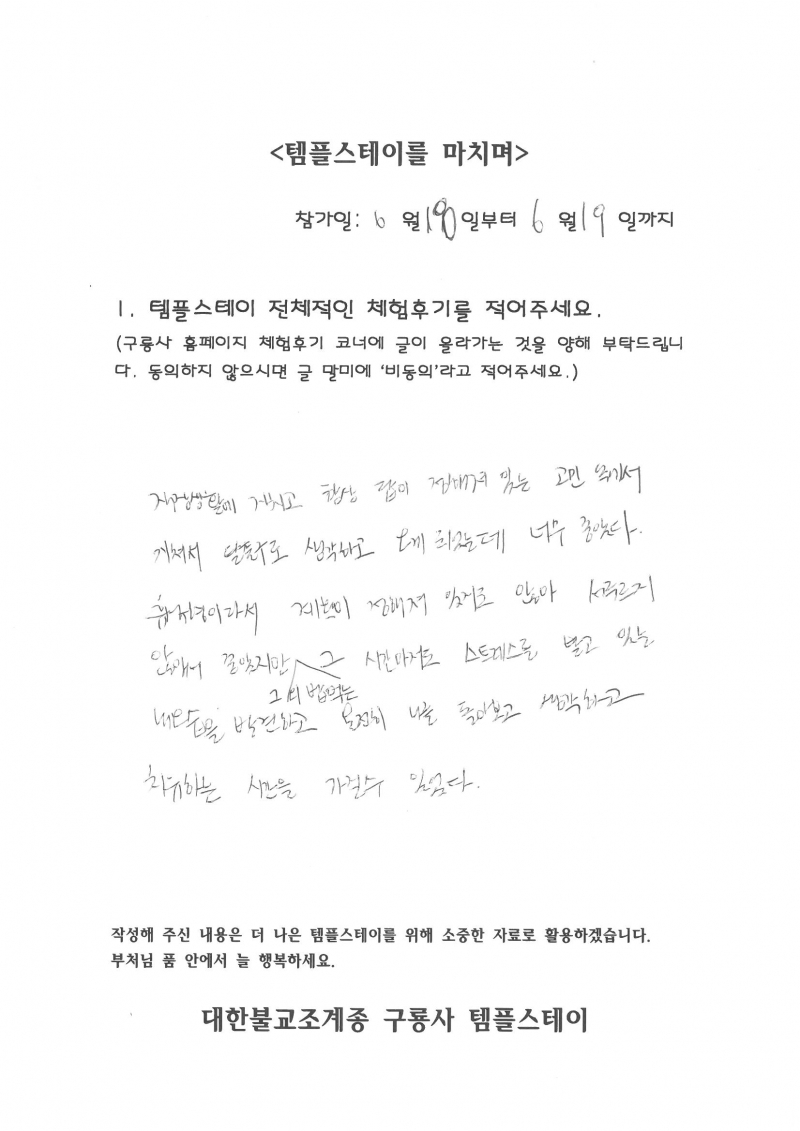 <템플스테이를 마치며>
참가일: 6 월 18일부터 6 월 19 일까지
1. 템플스테이 전체적인 체험후기를 적어주세요.
(구룡사 홈페이지 체험후기 코너에 글이 올라가는 것을 양해 부탁드립니
다. 동의하지 않으시면 글 말미에 '비동의'라고 적어주세요.)
지치고 항상 답이 정해져 있는 고민 속에서
생각하고 오게 되었는데 너무 좋았다.
휴식형이라서 계획이 정해져 있지도 않아 서두르지
않아서 좋았지만 그 시간마저도 스트레스를 받고 있는
내모습을 발견하고 온전히 나를 돌아보고 생각하고
치유하는 시간을 가질수 있었다.
작성해 주신 내용은 더 나은 템플스테이를 위해 소중한 자료로 활용하겠습니다.
부처님 품 안에서 늘 행복하세요.
대한불교조계종 구룡사 템플스테이